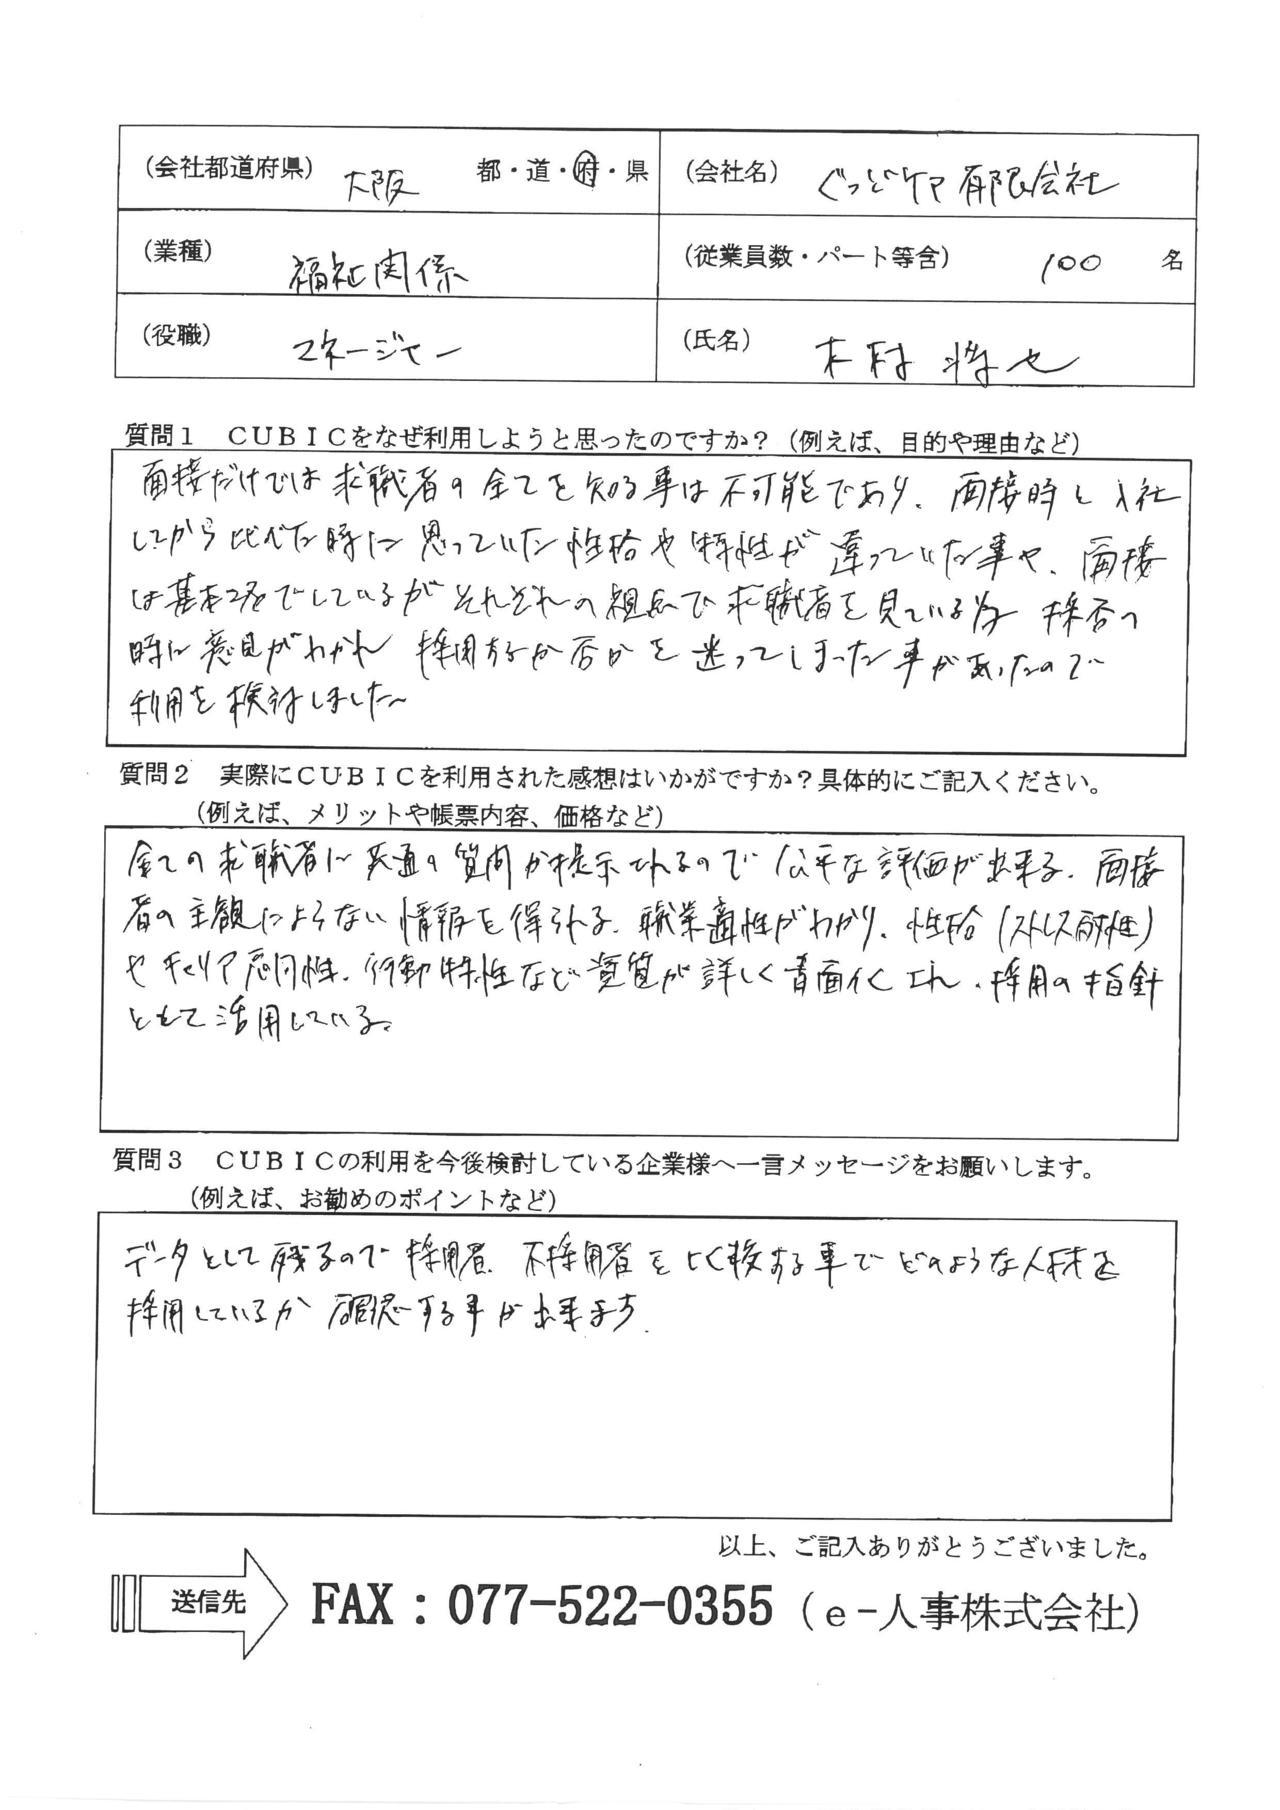 （会社都道府県） 大阪 都・道・府・県 （会社名） ぐっどケア有限会社
（業種） 福祉関係 （従業員数・パート等含） 100 名
（役職） マネージャー （氏名） 木村 将也
質問１　ＣＵＢＩＣをなぜ利用しようと思ったのですか？（例えば、目的や理由など）
面接だけでは求職者の全てを知る事は不可能であり、面接時と入社
してから比べた時に思っていた性格や特性が違っていた事や、面接
は基本2名でしているがそれぞれの視点で求職者を見ている為、採否の
時に意見がわかれ採用すか否かを迷ってしまった事があったので
利用を検討しました
質問２　実際にＣＵＢＩＣを利用された感想はいかがですか？具体的にご記入ください。
（例えば、メリットや帳票内容、価格など）
全ての求職者に共通の質問が提示されるので公平な評価が出来る。面接
者の主観によらない情報を得られる。職業適性がわかり、性格（ストレス耐性）
やキャリア志向性、行動特性など資質が詳しく書面化され、採用の指針
として活用している。
質問３　ＣＵＢＩＣの利用を今後検討している企業様へ一言メッセージをお願いします。
（例えば、お勧めのポイントなど）
データとして残るので採用者、不採用者を比較する事でどのような人材を
採用しているか確認する事が出来ます。
以上、ご記入ありがとうございました。
送信先 FAX：077-522-0355（ｅ-人事株式会社）